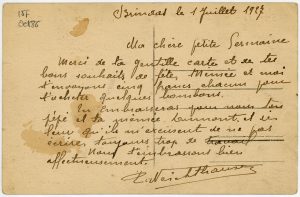 157
Brindas le 1 Juillet 1927
Ma chère petite Germaine
Merci de ta gentille carte et de tes
bons souhaits de fête, Mémée et moi
t'envoyons cinq francs chacun pour
t'acheter quelques bonbons.
Tu embrasseras pour nous ton
pépé et ta mémée et dis
leur qu'ils m'excusent de ne pas
écrire toujours trop de travail
Nous t'embrassons bien
affectueusement.